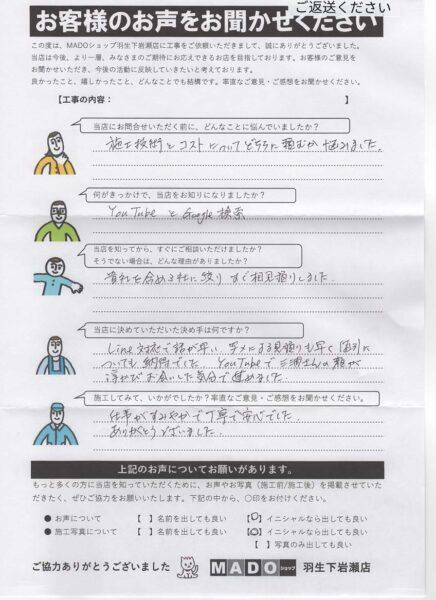 ご返送ください
お客様のお声をお聞かせください
この度は、MADOショップ羽生下岩瀬店に工事をご依頼いただきまして、誠にありがとうございました。
当店は今後、より一層、みなさまのご期待にお応えできるお店を目指しております。お客様のご意見を
お聞かせいただき、今後の活動に反映していきたいと考えております。
良かったこと、嬉しかったこと、どんなことでも結構です。率直なご意見・ご感想をお聞かせください。
【工事の内容： 】
当店にお問合せいただく前に、どんなことに悩んでいましたか？
施工技術とコストについてどちらに頼むか悩みました。
何がきっかけで、当店をお知りになりましたか？
YouTubeとGoogle検索
当店を知ってから、すぐにご相談いただけましたか？
そうでない場合は、どんな理由がありましたか？
貴社を含め3社に絞り すぐ相見積りしました。
当店に決めていただいた決め手は何ですか？
Line対応で話が早い。写メによる見積りも早く値引に
ついても納得でした。YouTubeで三浦さんの顔が
浮かびお会いした気分で進めました。
施工してみて、いかがでしたか？率直なご意見・ご感想をお聞かせください。
仕事がすみやかで丁寧で安心でした。
ありがとうございました。
上記のお声についてお願いがあります。
もっと多くの方に当店を知っていただくために、お声やお写真（施工前/施工後）を掲載させていた
だきたく、ぜひご協力をお願いいたします。下記の中から、〇印をお付けください。
● お声について 【 】名前を出しても良い 【〇】イニシャルなら出しても良い
● 施工写真について 【 】名前を出しても良い 【〇】イニシャルなら出しても良い
【 】写真のみ出しても良い
ご協力ありがとうございました MADOショップ 羽生下岩瀬店